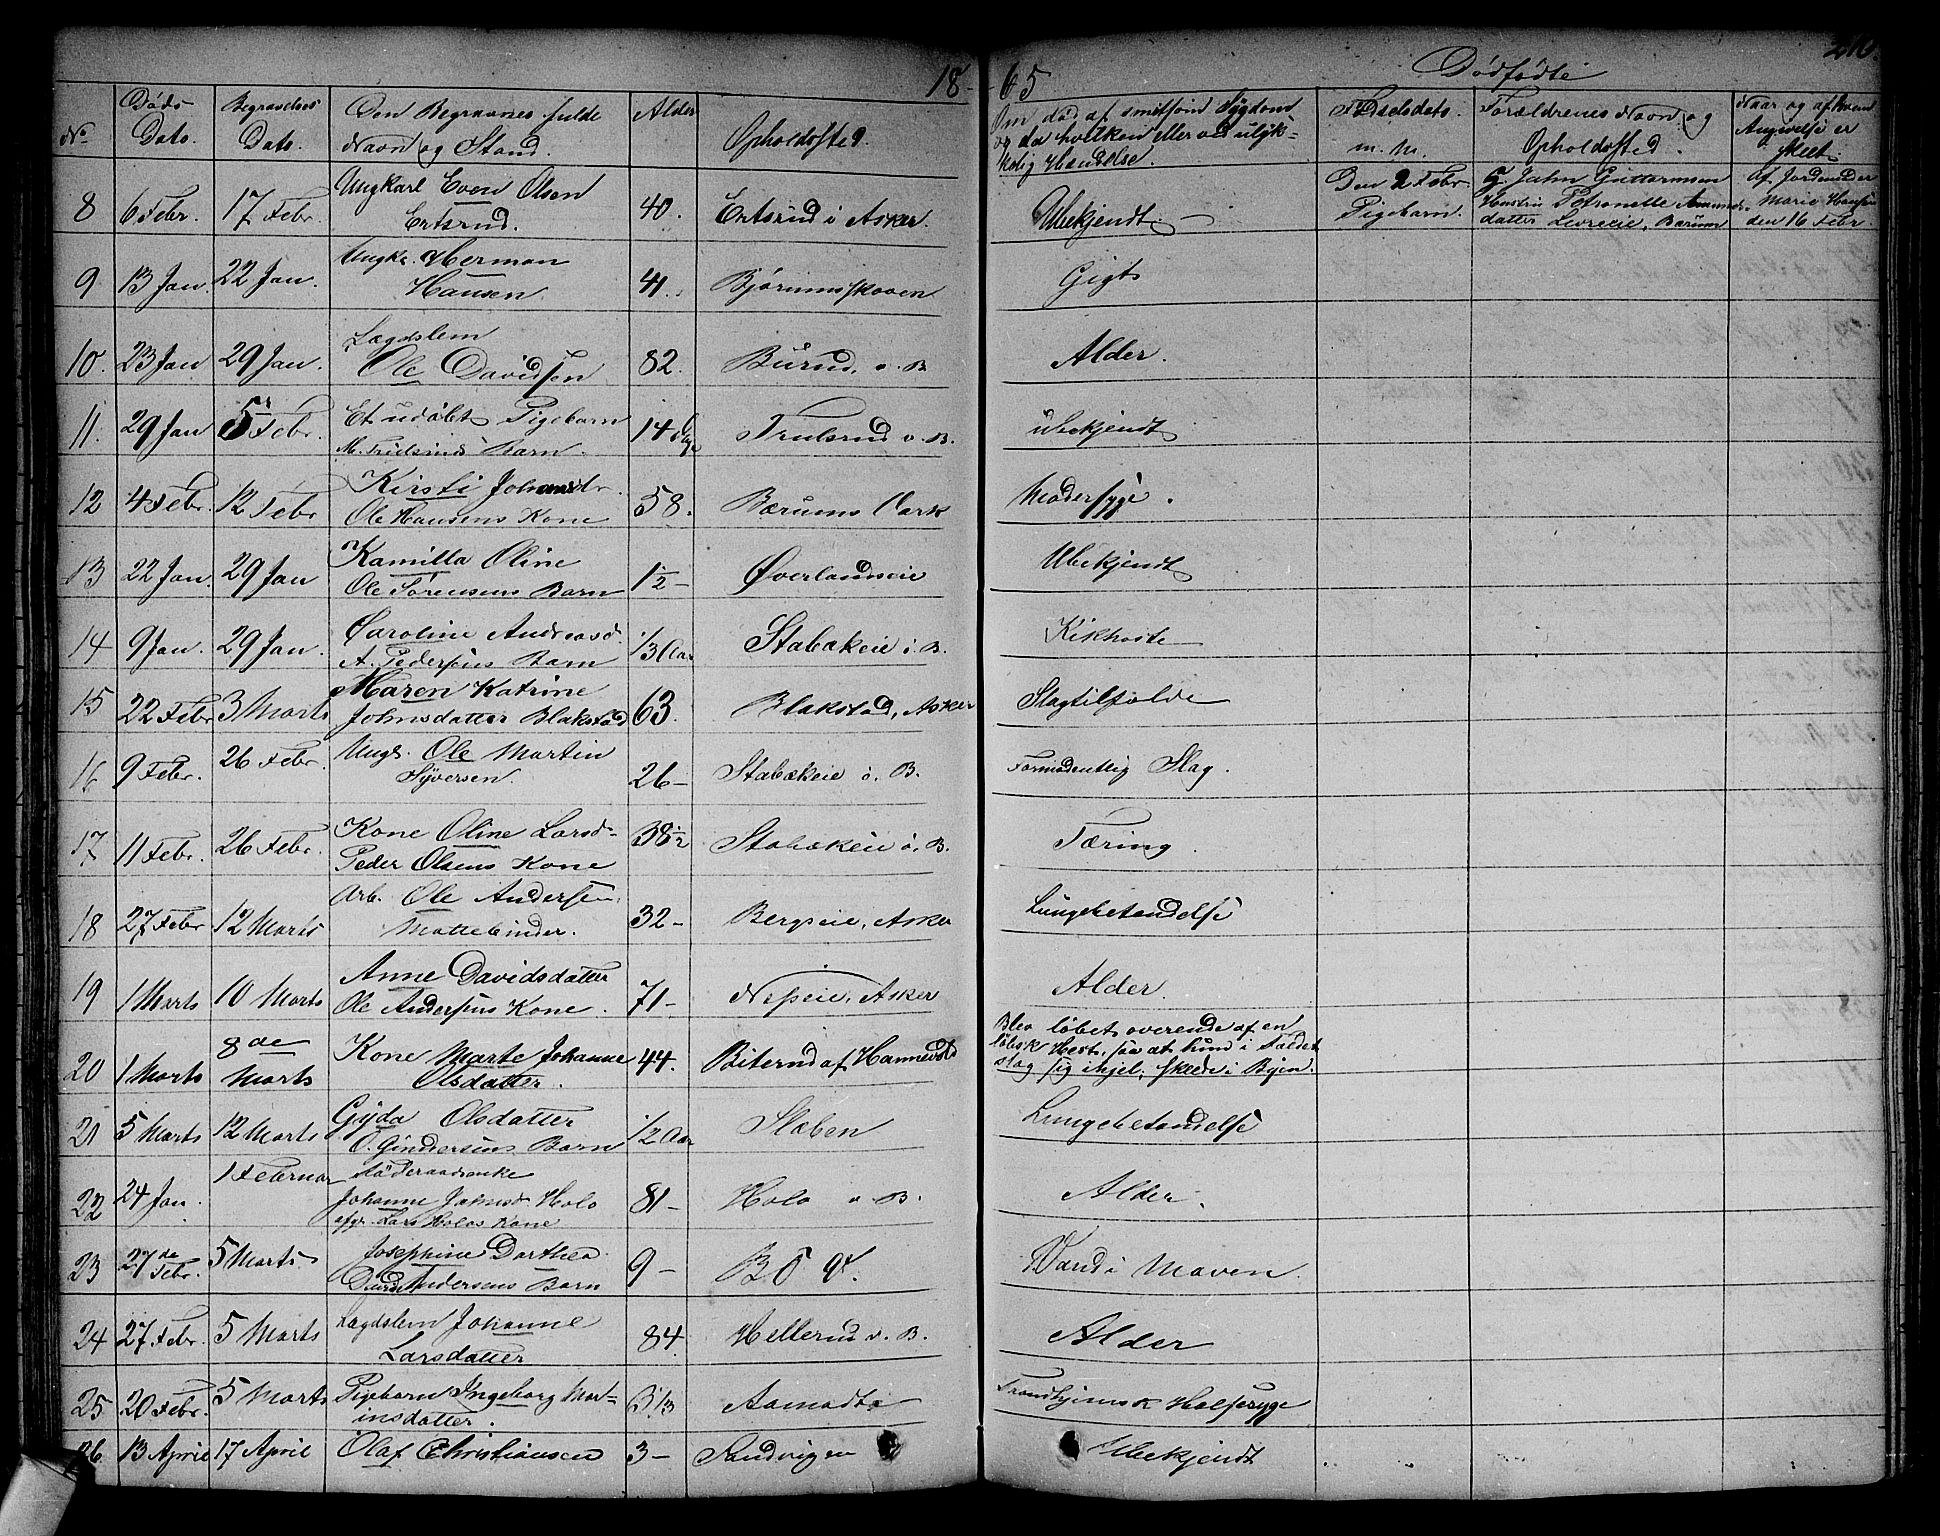 18 65 Dødfødte 210.
No Døds Dato. Begravelses Dato. Den Begravnes fulde Navn og Stand. Alder Opholdssted. Om død af smitsom Sygdom og da hvilken eller ved ulyk- kelig Hændelse. Fødselsdato m. M. Forældrenes Navn og Opholdssted. Naar og af hvem Angivelse er skeet.
8 6 Febr. 17 Febr. Ungkarl Even Olsen Ertsrud. 40. Ertsrud i Asker. Ubekjendt. Den 2 Febr. Pigebarn. John Guttormsen Petronette datter Levreeie, Bærum af Jordmoder Marie Hansen den 16 Febr.
9 13 Jan. 22 Jan. Ungk. Herman Hansen 41. Bjørumsskoven Gigt
10. 23 Jan 29 Jan. Lægdslem Ole Davidsen 82. Burud, v. B Alder.
11. 29 Jan 5 Febr. Et udøbt Pigebarn M. Trulsruds Barn. 14 Dage Trulsrud v. B. ubekjendt
12 4 Febr. 12 Febr Kirsti Johansdr. Ole Hansens Kone 58. Bærums Værk Modersyge.
13 22 Jan. 29 Jan Kamilla Oline Ole Torensens Barn 1½ – Øverlandseie Ubekjendt
14 9 Jan. 29 Jan. Caroline Andreasd. A. Pedersens Barn 1/3 Aar Stabækeie i B. Kikhoste
15 22 Febr 3 Marts Maren Katrine Johnsdatter Blakstad 63. Blakstad, Asker Slagtilfælde
16 9 Febr. 26 Febr. Ungk. Ole Martin Syversen. 26 – Stabækeie i. B. Formodentlig Slag.
17 11 Febr. 26 Febr. Kone Oline Larsd- Peder Olsens Kone 38½ Stabækeie i. B. Tæring.
18 27 Febr 12 Marts Arb. Ole Andersen Mattebinder. 32 – Bergseie, Asker Lungebetændelse
19 1 Marts 10 Marts Anne Davidsdatter Ole Andersens Kone. 71 – Neseie, Asker Alder.
20 1 Marts 8de Marts Kone Marte Johanne Olsdatter. 44. Biterud af Hannevold Blev løbet overende af en løbsk Hest, saa at hund i Faldet slog sig ihjel, skede i Byen.
21 5 Marts 12 Marts Gyda Olsdatter O. Gundersens Barn 1/2 Aar Slæben Lungebetændelse
22 24 Jan. 1 Februar Føderaadsenke Johanne Johnsd. Holo afgr. Lars Holos Kone 81 – Holo v. B. Alder.
23 27de Febr. 5 Marts Josephine Dorthea Andersens Barn 9 – Bø Vand i Maven.
24 27 Febr. 5 Marts Lægdslem Johanne Larsdatter 84. Hellerud v. B. Alder
25 20 Febr. 5 Marts Pigebarn Ingeborg Mart- insdatter. 3 1/3 Aamodt Trondhjemsk Halssyge
26 13 April 17 April Olaf Christiansen 3 – Sandvigen Ubekjendt